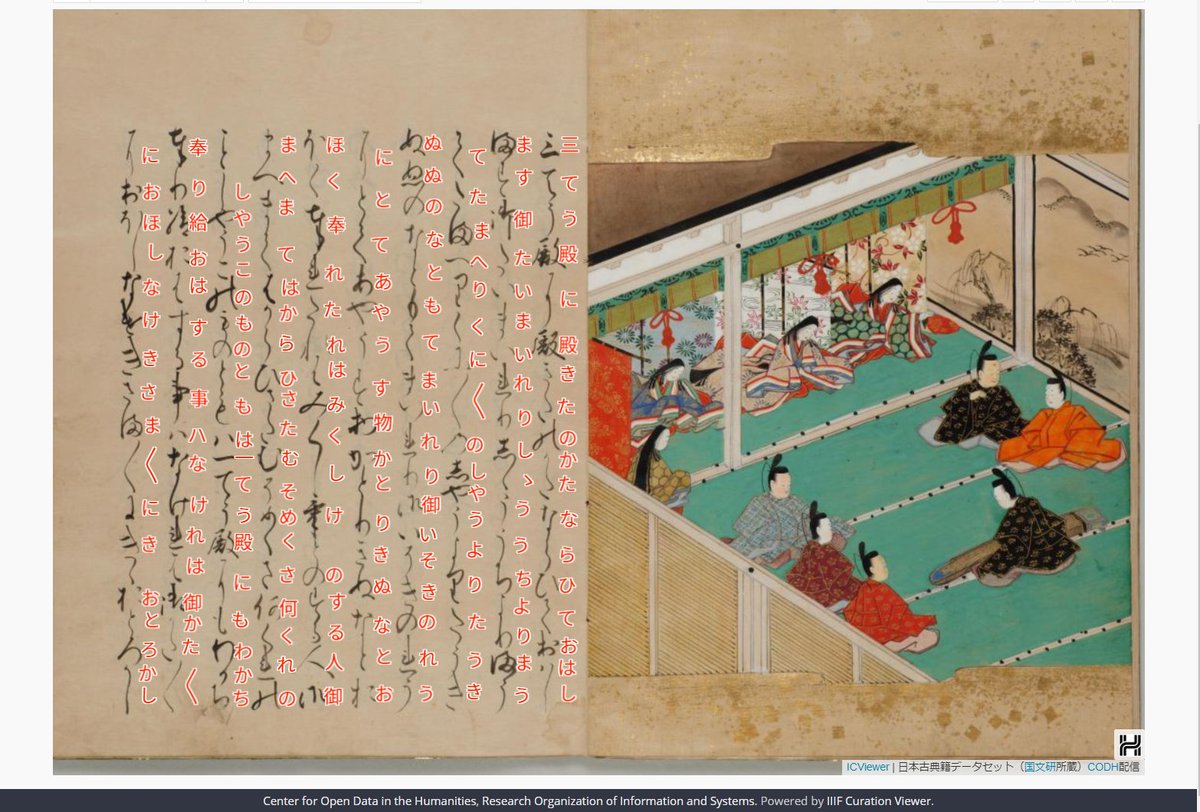 三てう殿に殿きたのかたならひておはし
ます御たいまいれりしゝうちよりまう
てたまへりくに〱のしやうよりたうき
ぬぬのなともてまいれり御いそきのれう
にとてあやうす物かとりきぬなとお
ほく奉れたれはみくしけのする人御
まへまてはからひさたむそめくさ何くれの
しやうこのものとも一てう殿にもわかち
奉り給おはする事ハなけれは御かた〱
におほしなけきさま〱にきおとろかし
ICViewer | 日本古典籍データセット（国文研所蔵）CODH配信
Center for Open Data in the Humanities, Research Organization of Information and Systems. Powered by IIIF Curation Viewer.